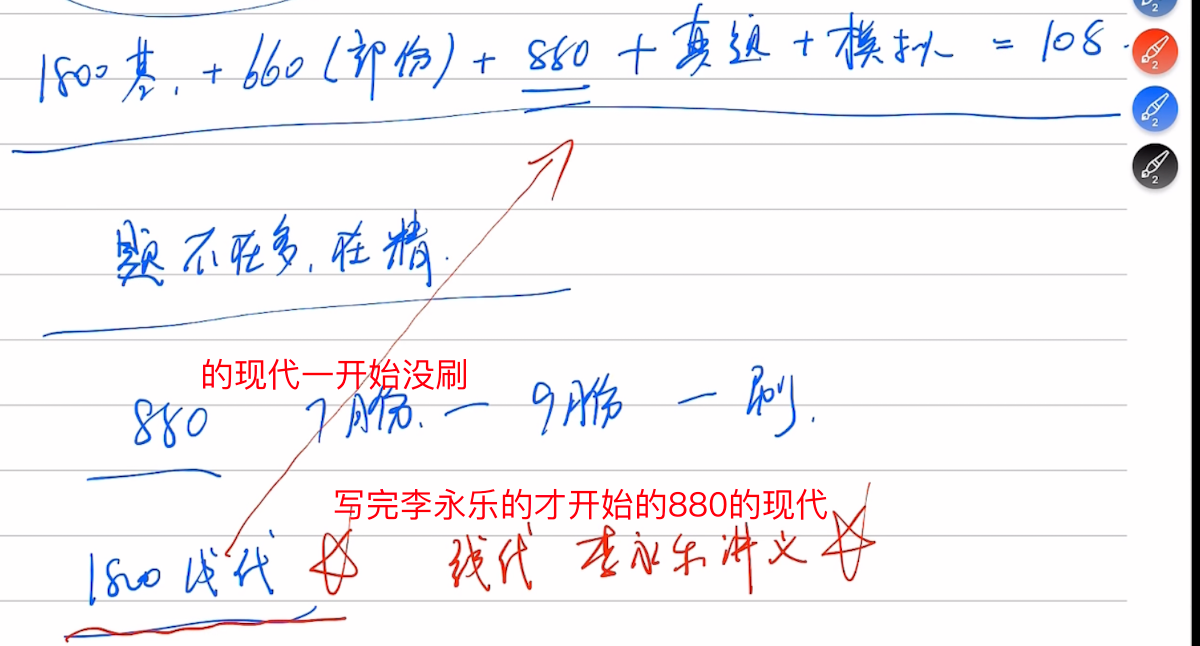 1800基. + 660(部份) + 880 + 真题 + 模拟 = 108.
题不在多,在精.
的现代一开始没刷
880 7月份. — 9月份 一刷.
写完李永乐的才开始的880的现代
1800线代 线代 李永乐讲义